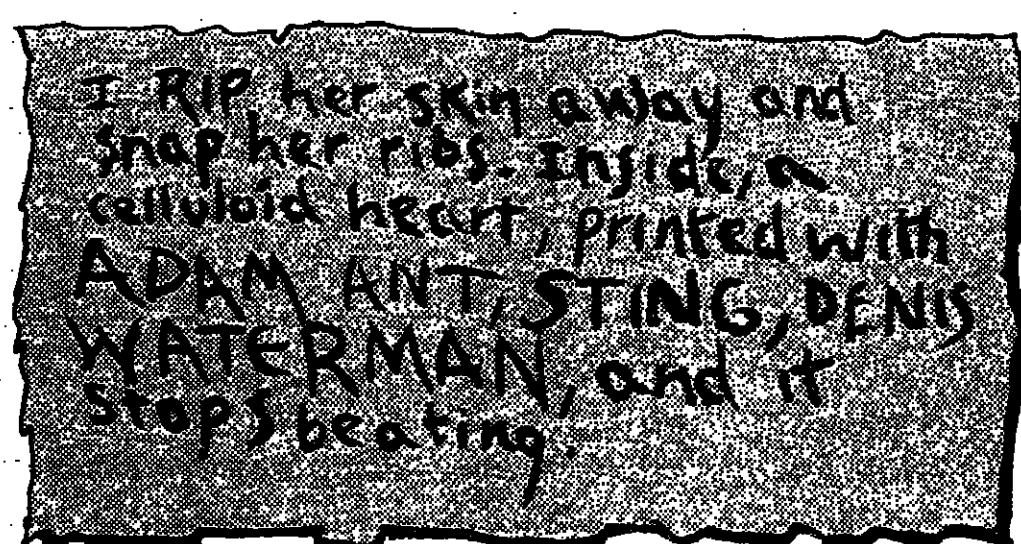 I RIP her skin away and
snap her ribs. Inside, a
celluloid heart, printed with
ADAM ANT, STING, DENIS
WATERMAN, and it
stops beating.